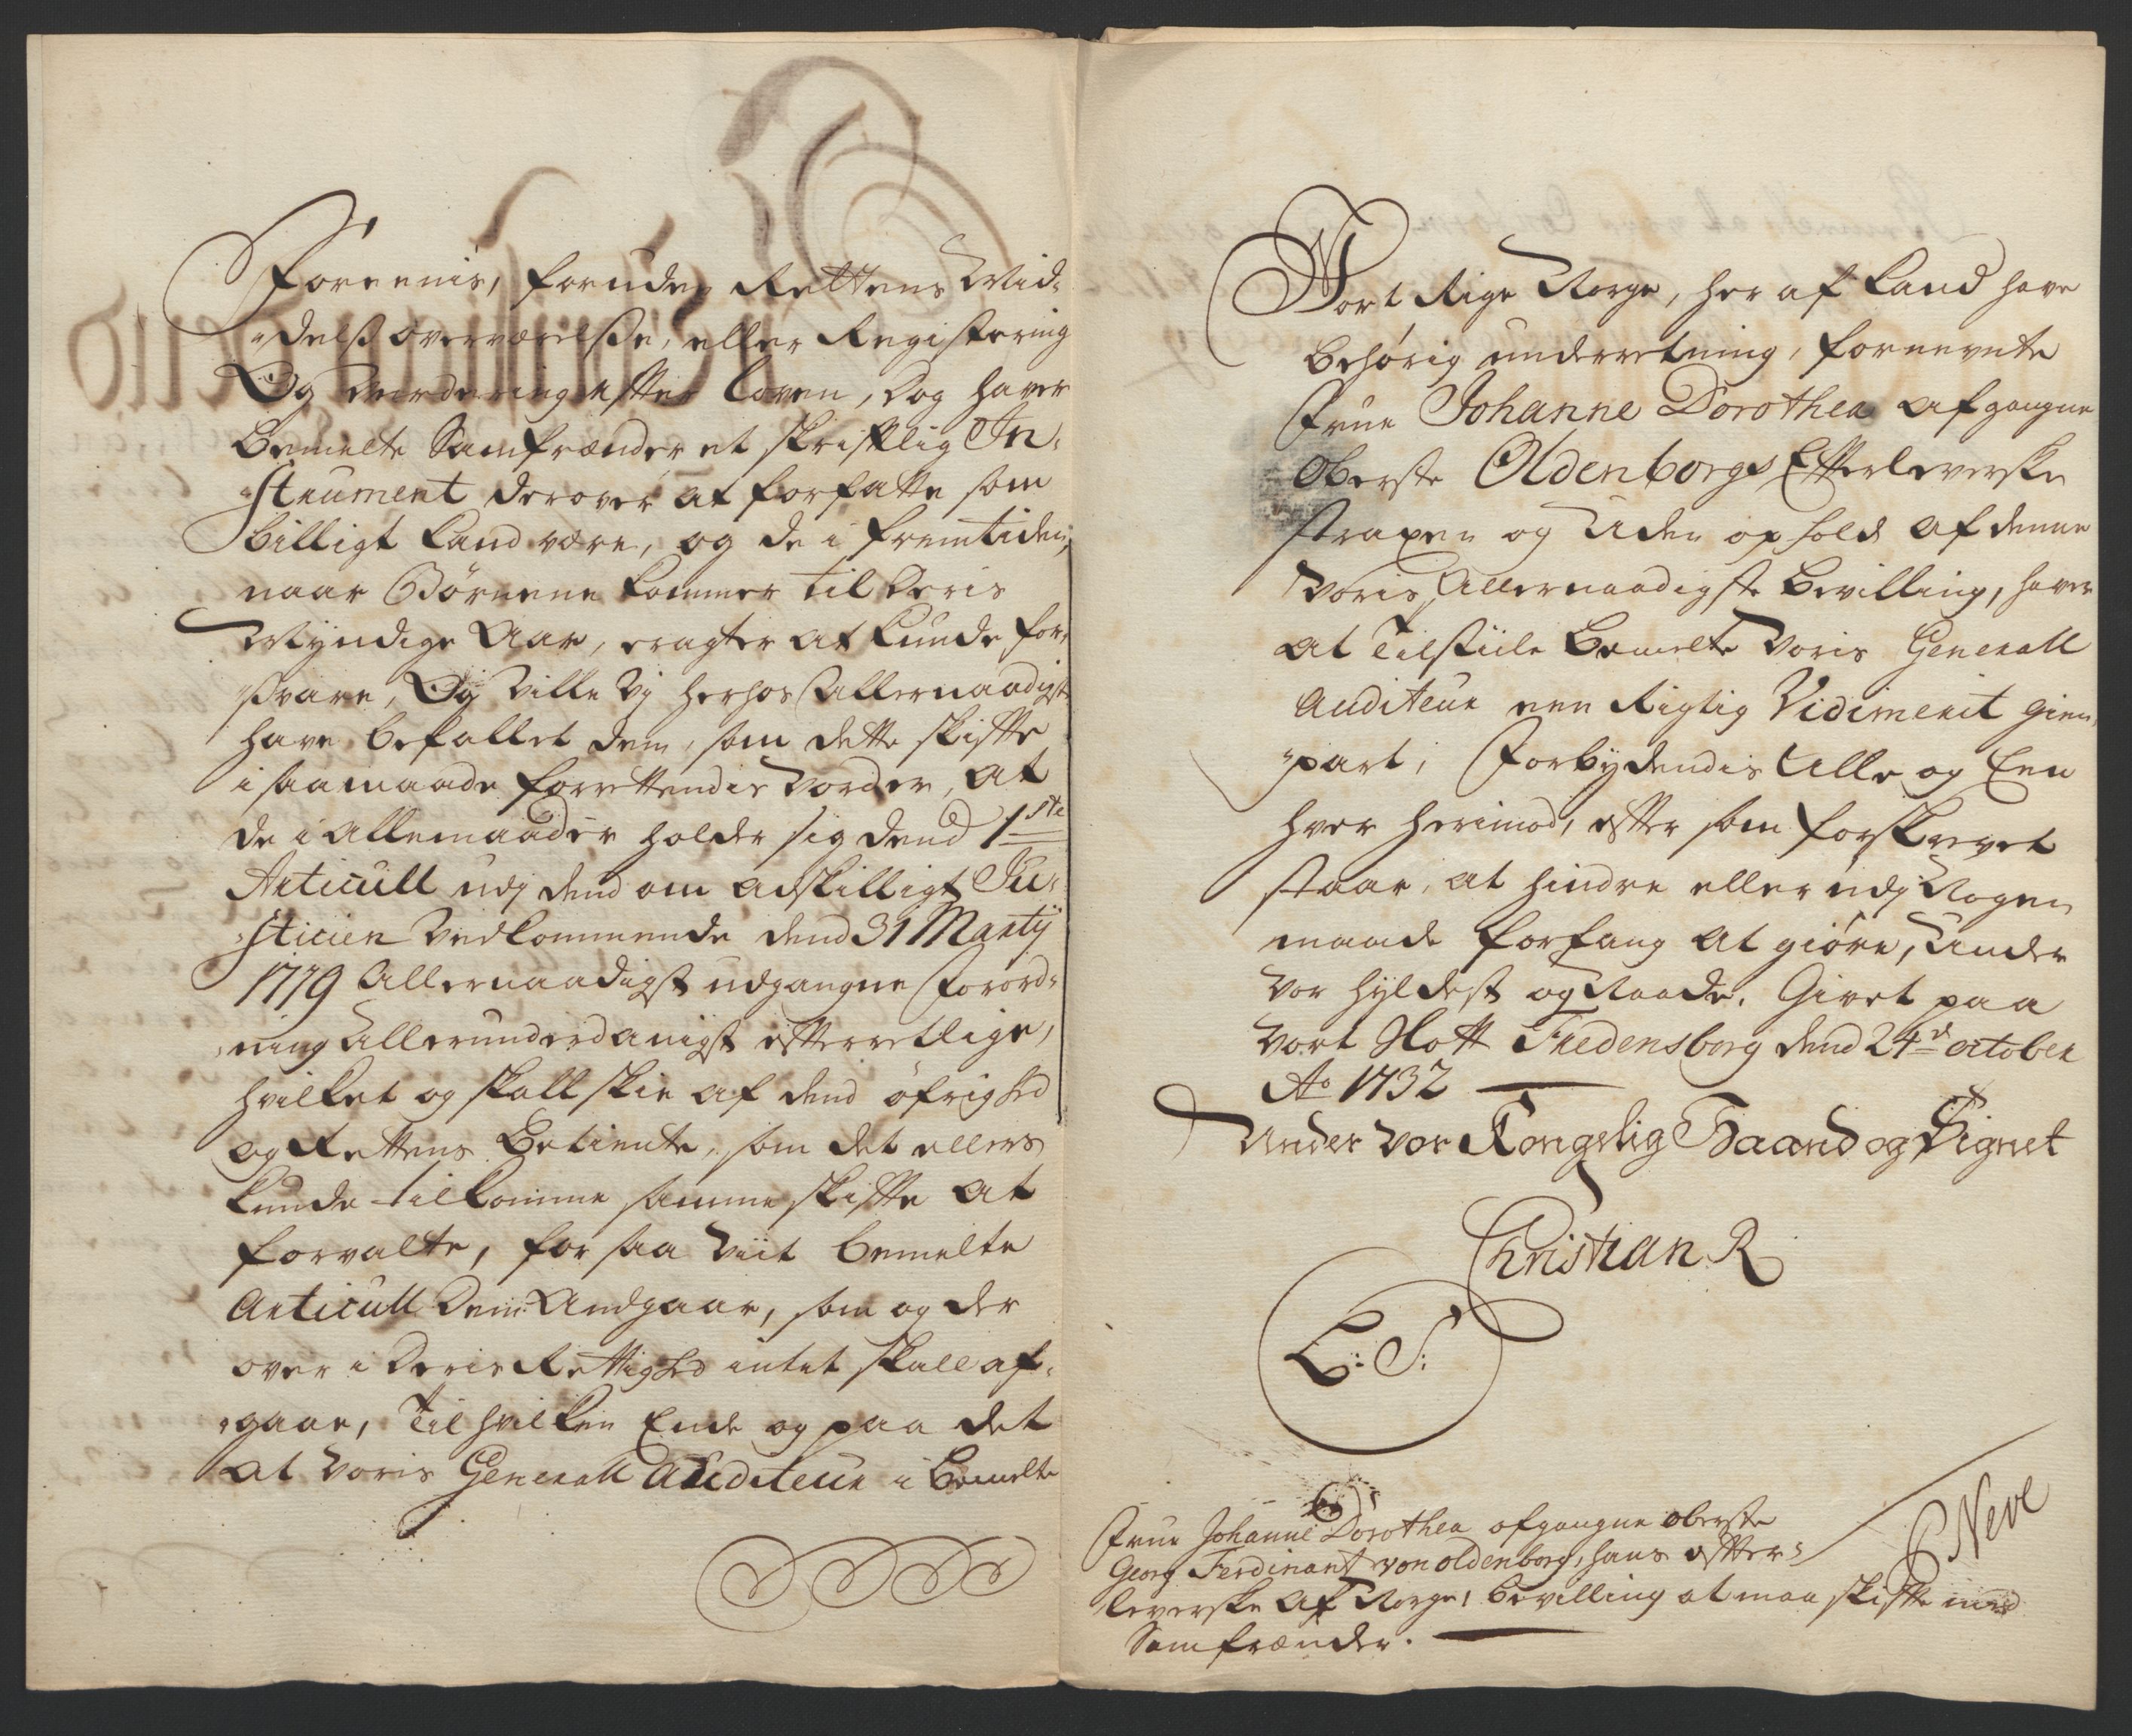 foreenis, foruden Rettens Mid-
delß overværelße, eller Registering
Og Vurdering efter loven, dog haver
bemelte Samfrænder et skrifftlig In-
strument derover at forfatte som
billigt kand være, og de i fremtiden,
naar Børnene kommer til deris
Myndige Aar, eragter at kunde for-
svare, Og ville Vj herhos Allernaadigst
have befallet dem, som dette skiffte
i saamaade forrettendis vorder, at
de i allemaader holder sig dend 1ste
Articull udj dend om adskilligt Ju-
sticien Vedkommende dend 31 Martij
1719 Allernaadigst udgangne Forord-
ning Allerunderdanigst efterrettlige,
hvilket og skall skee af dend øfrighed
og Rettens Betiente, som det ellers
kunde tilkomme samme skiffte at
forvalte, for saa viit bemelte
Articull dem Andgaar, som og der
over i deris Rettighed intet skall af-
gaae, Til hvilken Ende og paa det
at voris Generall Auditeur i bemelte
Vort Rige Norge, her af kand have
behørig underretning, fornevnte
Frue Johanne Dorothea afgangne
Oberste Oldenborgs Efterleverske
straxen og Uden ophold af denne
voris Allernaadigste bevilling, haver
at tilstiile bemelte voris Generall
Auditeur een Rigtig Vidimerit gien-
part, Forbydendis Alle og Een
hver herimod, efter som forskrevet
staar, at hindre eller udj Nogen
maade forfang at giøre, Under
vor hyldest og Naade. Givet paa
vort Slott Fredensborg dend 24d october
Ao 1732
Under vor Kongelig Haand og Signet
Christian R
L: S:
Frue Johanne Dorothea afgangne oberste
Georg Ferdinant von oldenborg, hans efter-
leverske af Norge, bevilling at maa skiffte med
Samfrænder.
C Neve